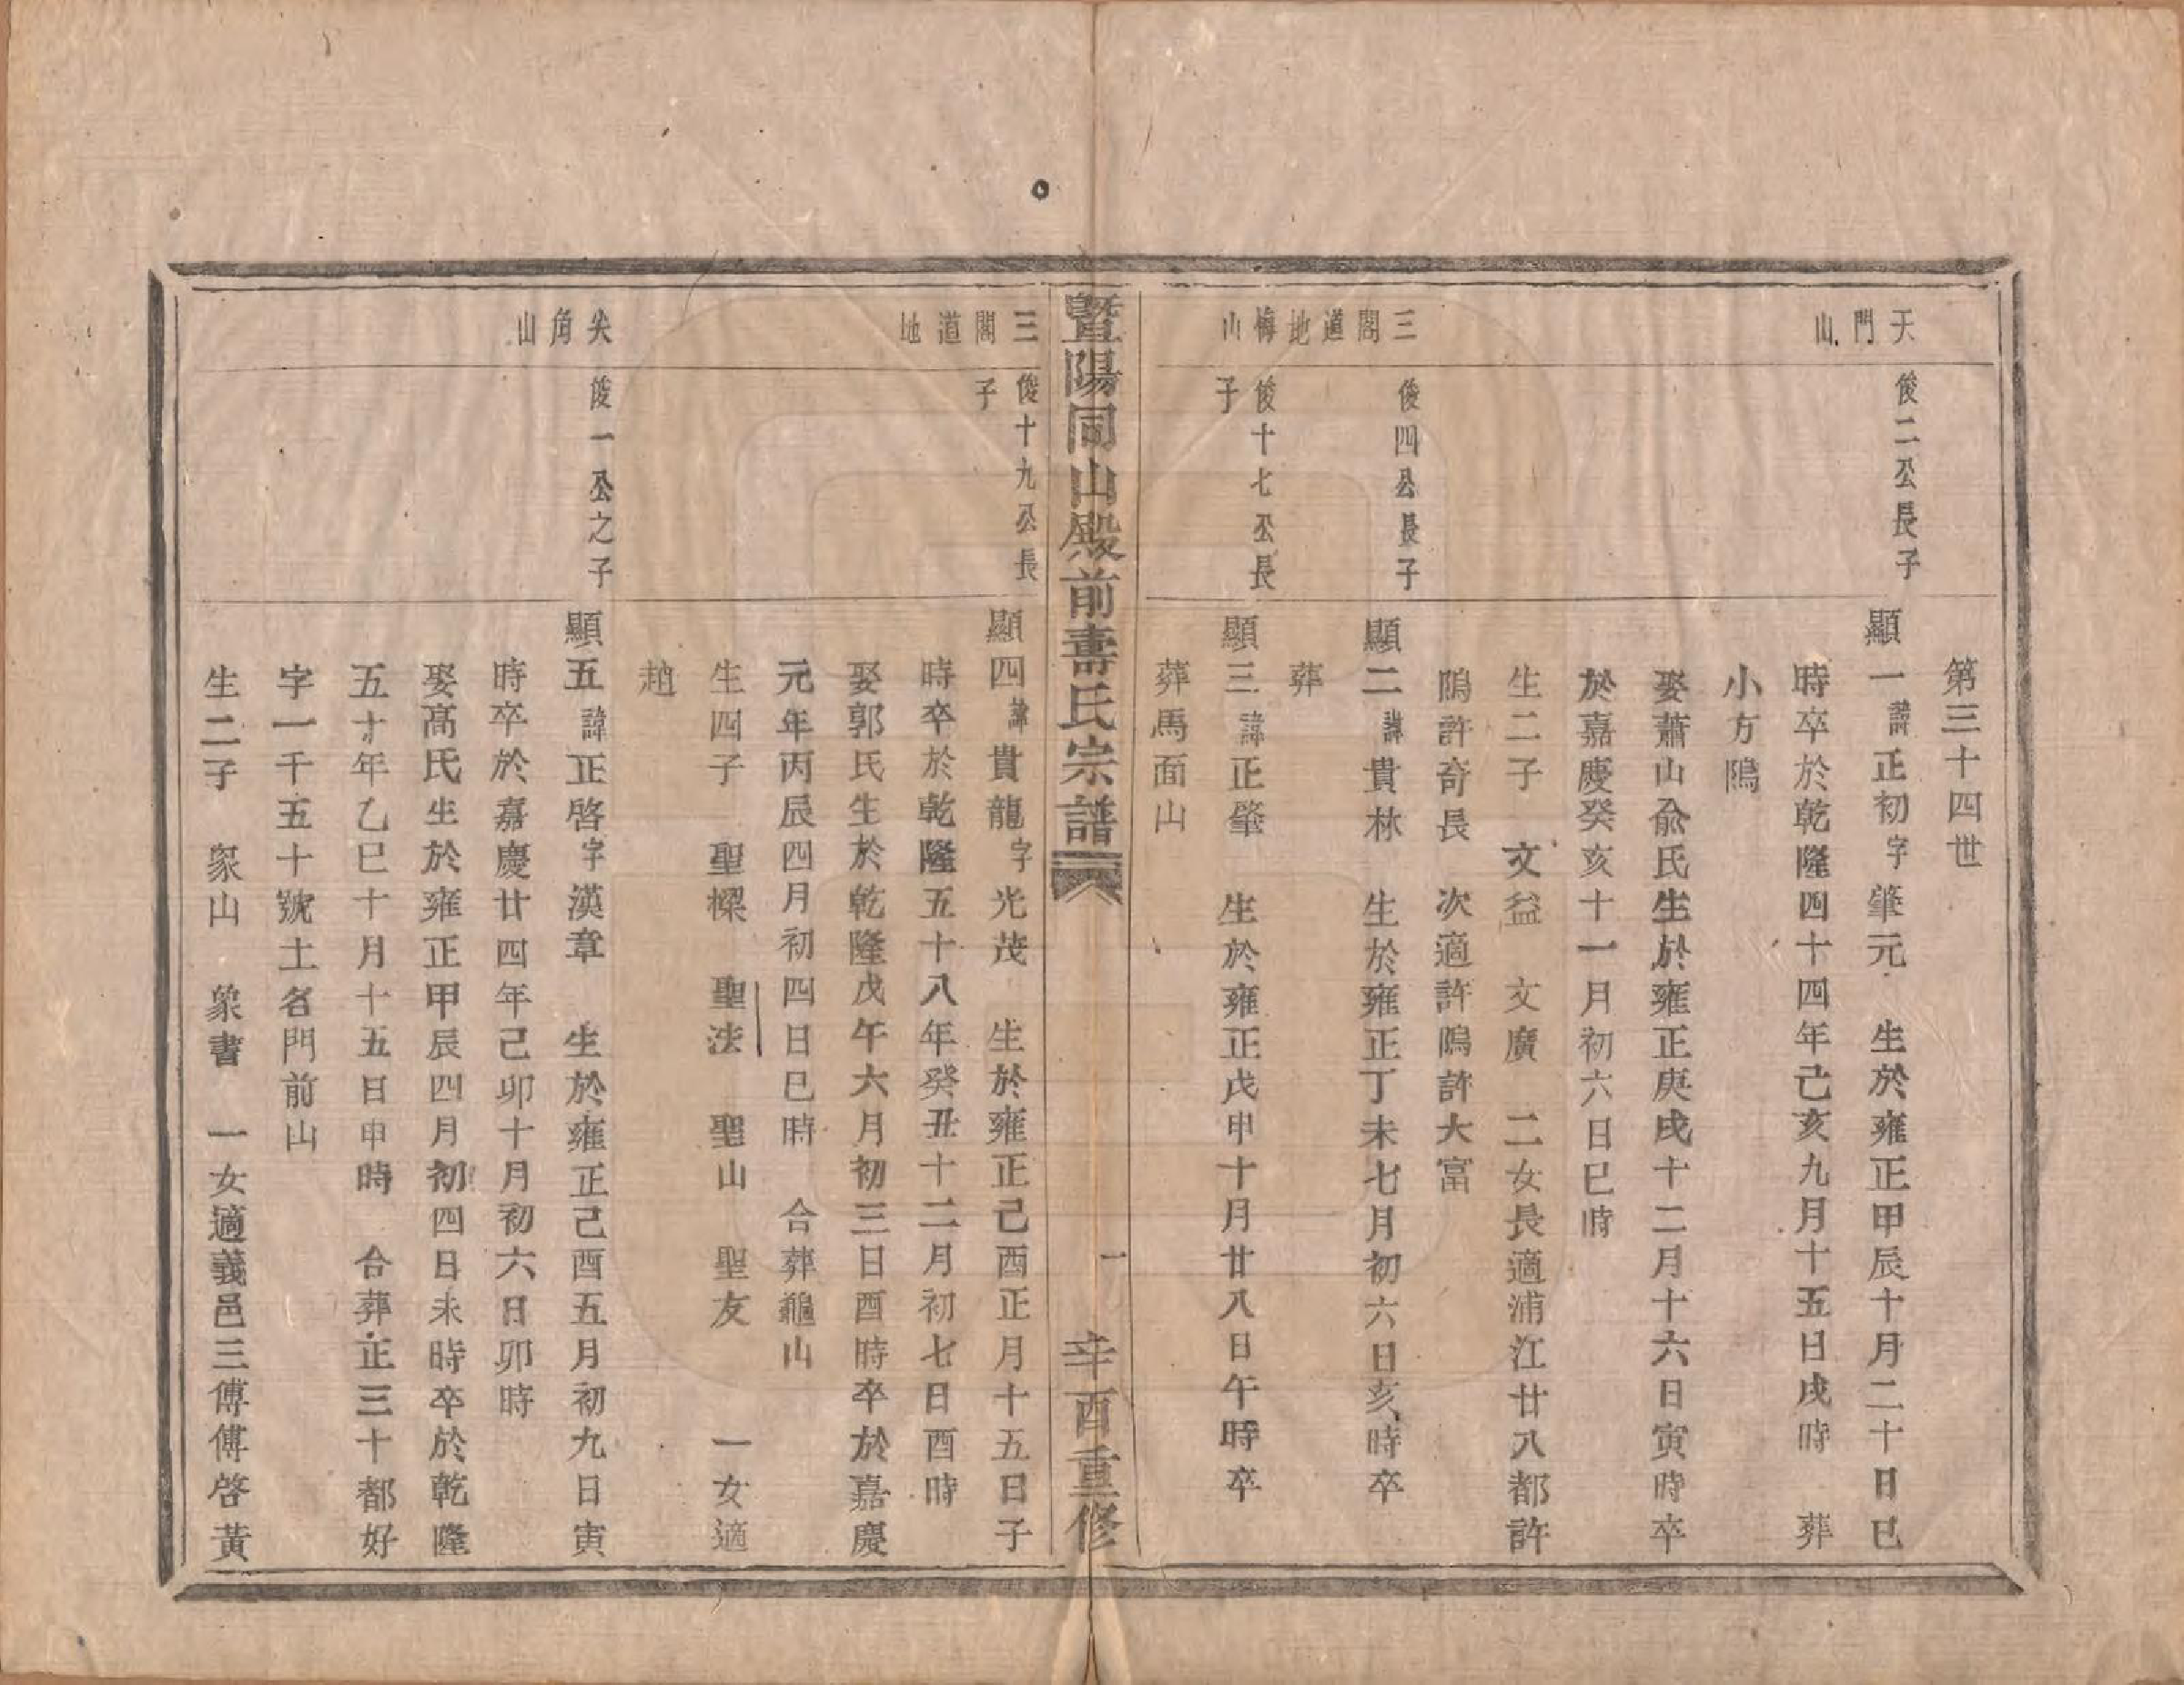 第三十四世
天門山
俊二公長子
顯一諱正初字肇元 生於雍正甲辰十月二十日巳
時卒於乾隆四十四年己亥九月十五日戌時 葬
小方隝
娶蕭山俞氏生於雍正庚戌十二月十六日寅時卒
於嘉慶癸亥十一月初六日巳時
生二子 文益 文廣 二女長適浦江廿八都許
隝許奇長 次適許隝許大富
三閣道地梅山
俊四公長子
顯二諱貴林 生於雍正丁未七月初六日亥時卒
葬
俊十七公長
子
顯三諱正肇 生於雍正戊申十月廿八日午時卒
葬馬面山
暨陽同山殿前壽氏宗譜
一
辛酉重修
三閣道地
俊十九公長
子
顯四諱貴龍字光茂 生於雍正己酉正月十五日子
時卒於乾隆五十八年癸丑十二月初七日酉時
娶郭氏生於乾隆戊午六月初三日酉時卒於嘉慶
元年丙辰四月初四日巳時 合葬龜山
生四子 聖樑 聖法 聖山 聖友 一女適
趙
尖角山
俊一公之子
顯五諱正啓字漢章 生於雍正己酉五月初九日寅
時卒於嘉慶廿四年己卯十月初六日卯時
娶高氏生於雍正甲辰四月初四日未時卒於乾隆
五十年乙巳十月十五日申時 合葬正三十都好
字一千五十號土名門前山
生二子 象山 象書 一女適義邑三傅傅啓黃